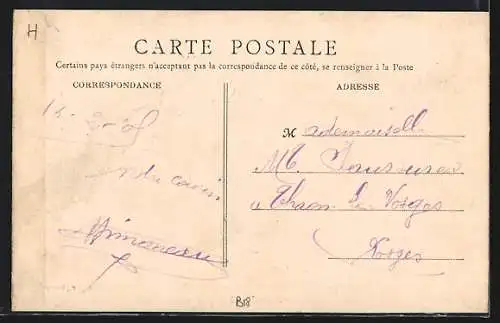 H
CARTE POSTALE
Certains pays étrangers n'acceptant pas la correspondance de ce côté, se renseigner à la Poste
CORRESPONDANCE
ADRESSE
Mademoiselle
M.
à Thaon les Vosges
Vosges
Votre cousin
B18